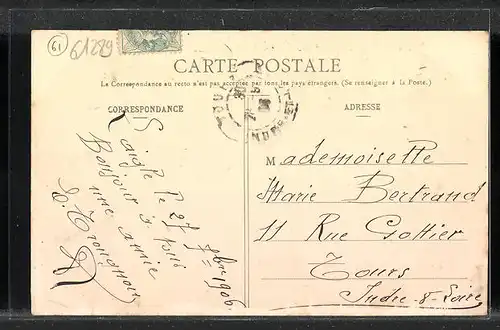 61
61289
CARTE POSTALE
La Correspondance au recto n'est pas acceptée par tous les pays étrangers. (Se renseigner à la Poste.)
CORRESPONDANCE
ADRESSE
Laigle le 27 7bre 1906
Bonjour à
une amie
Mademoiselle
Marie Bertrand
11 Rue Gottier
Tours
Indre-&-Loire